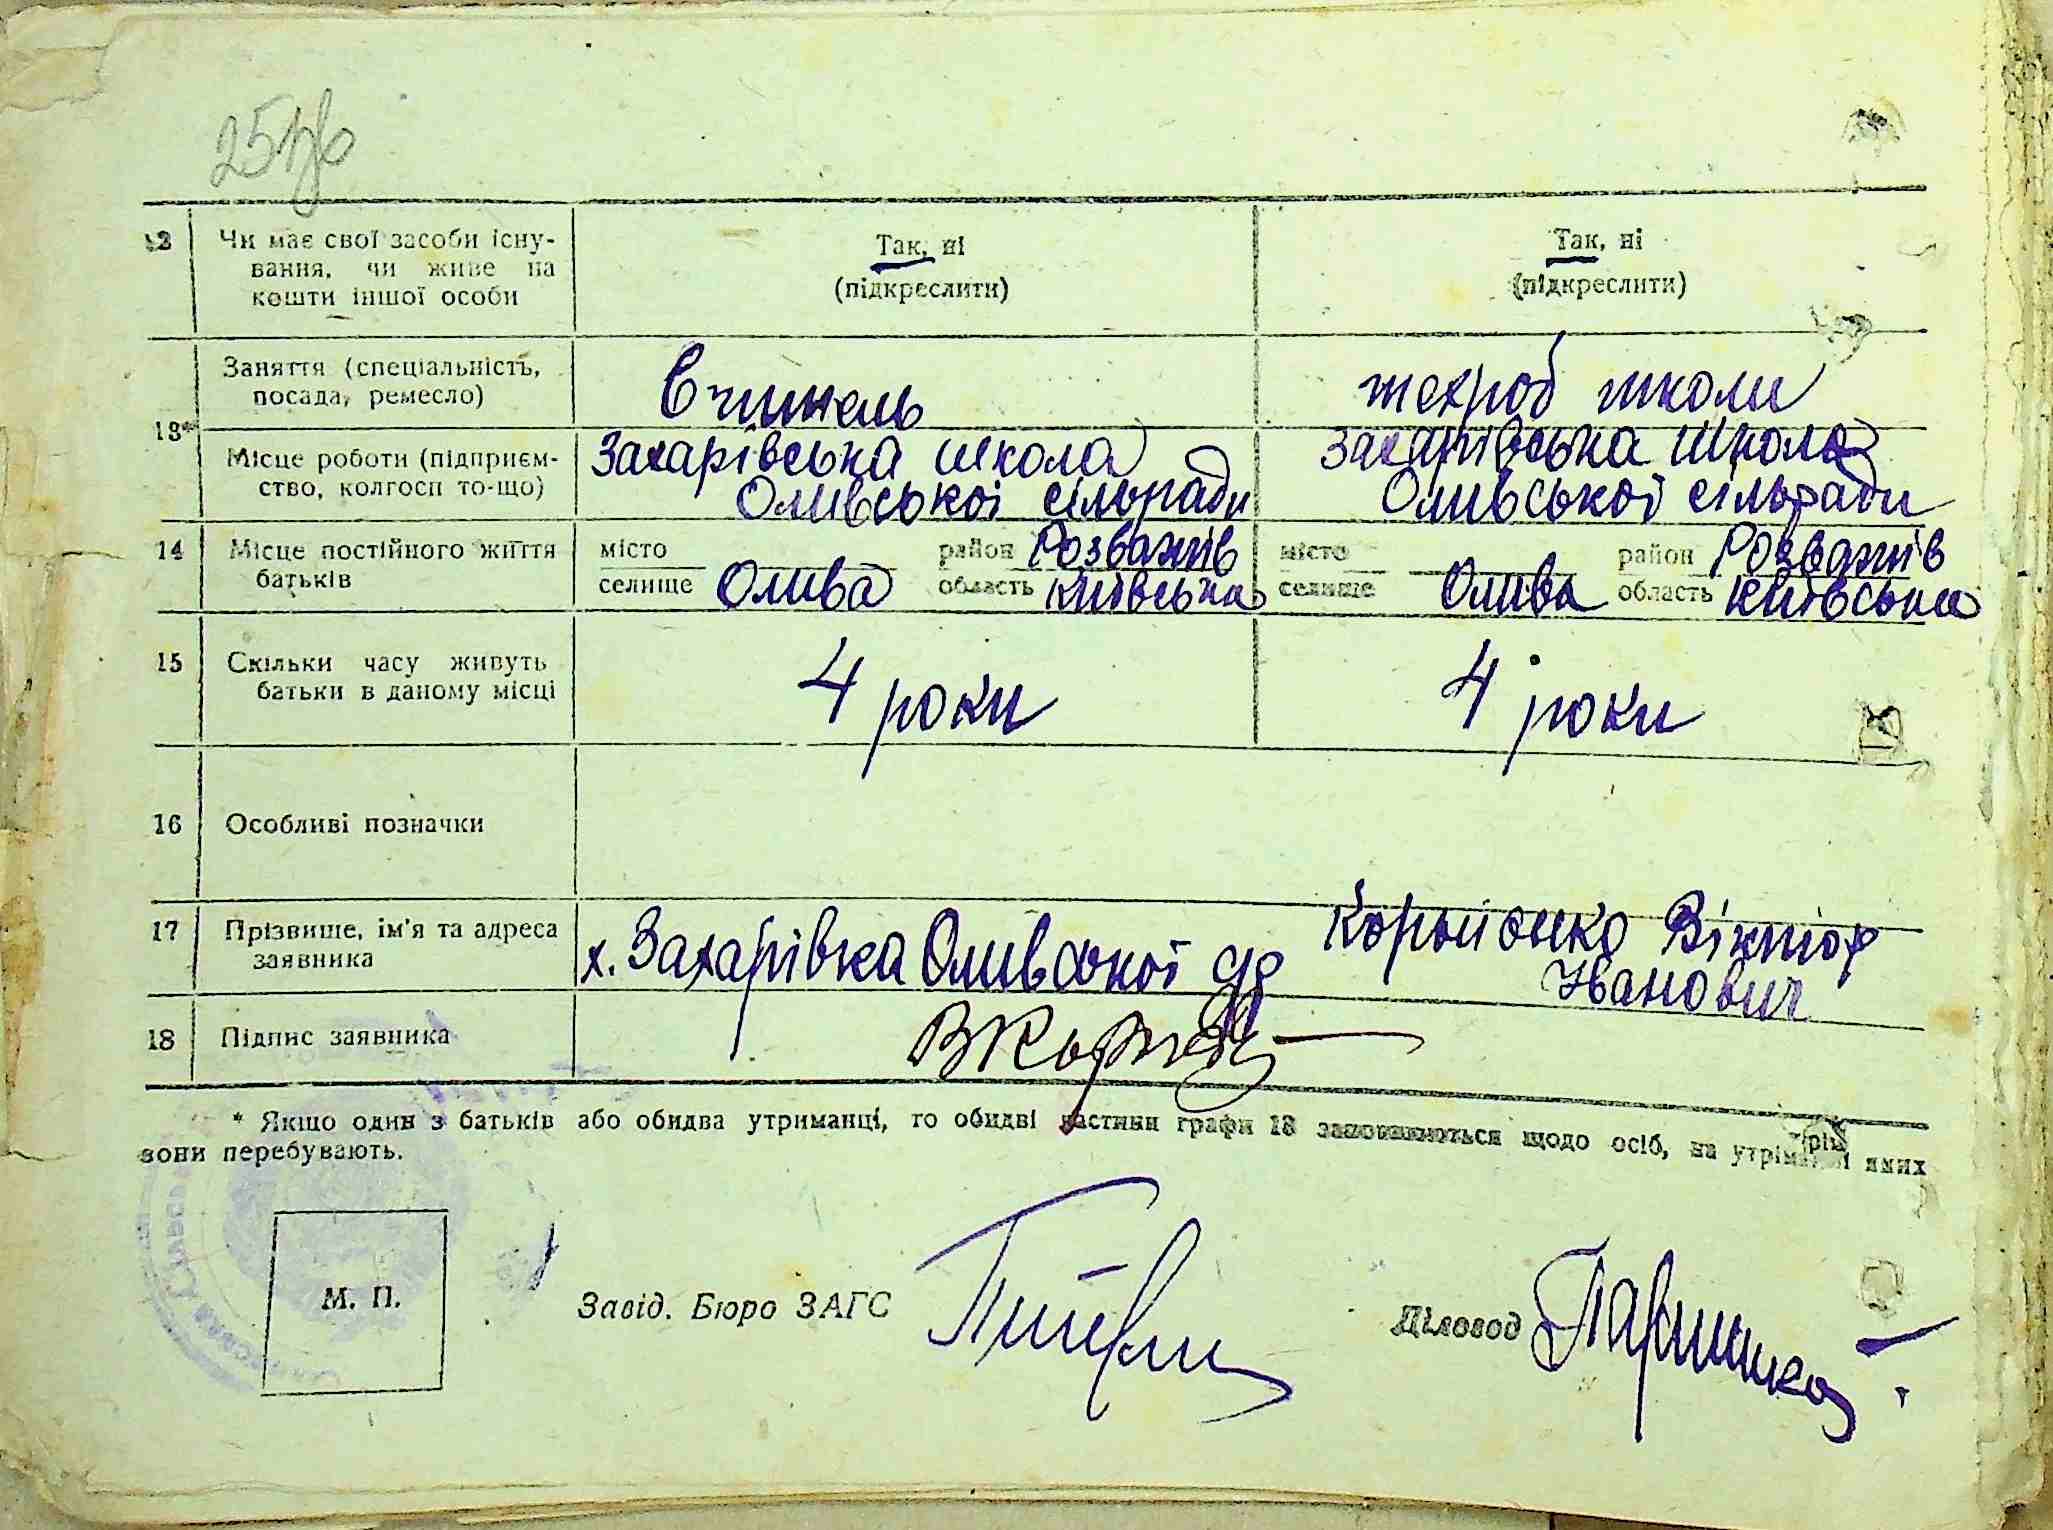 12 Чи має свої засоби існу-
вання, чи живе на
кошти іншої особи
Так, ні
(підкреслити)
Так, ні
(підкреслити)
13*
Заняття (спеціальність,
посада, ремесло)
Вчитель
техроб школи
Місце роботи (підприєм-
ство, колгосп то-що)
Захарівська школа
Оливської сільради
Захарівська школа
Оливської сільради
14 Місце постійного життя
батьків
місто район Розважів
селище Олива область Київська
місто район Розважів
селище Олива область Київська
15 Скільки часу живуть
батьки в даному місці
4 роки
4 роки
16 Особливі позначки
17 Прізвище, ім'я та адреса
заявника
х. Захарівка Оливської
Віктор
Іванович
18 Підпис заявника
* Якщо один з батьків або обидва утриманці, то обидві частини графи 13 заповнюються щодо осіб, на утриманні яких
вони перебувають.
М. П.
Завід. Бюро ЗАГС
Діловод